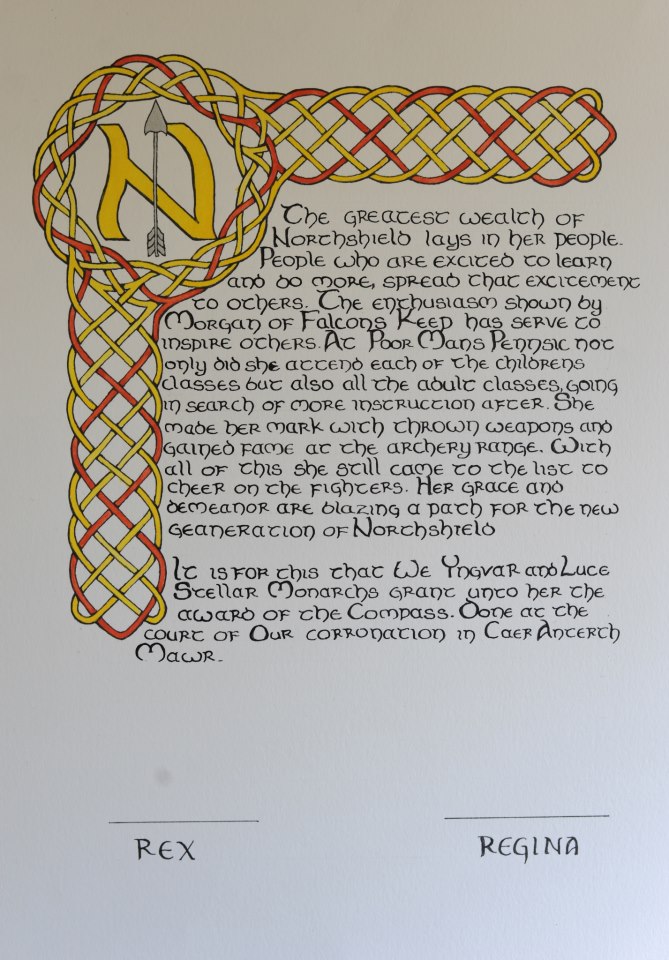 N
The greatest wealth of
Northshield lays in her people.
People who are excited to learn
and do more, spread that excitement
to others. The enthusiasm shown by
Morgan of Falcons Keep has serve to
inspire others. At Poor Mans Pennsic not
only did she attend each of the childrens
classes but also all the adult classes, going
in search of more instruction after. She
made her mark with thrown weapons and
gained fame at the archery range. With
all of this she still came to the list to
cheer on the fighters. Her grace and
demeanor are blazing a path for the new
geaneration of Northshield
It is for this that We Yngvar and Luce
Stellar Monarchs grant unto her the
award of the Compass. Done at the
court of Our corronation in Caer Anterth
Mawr.
REX
REGINA